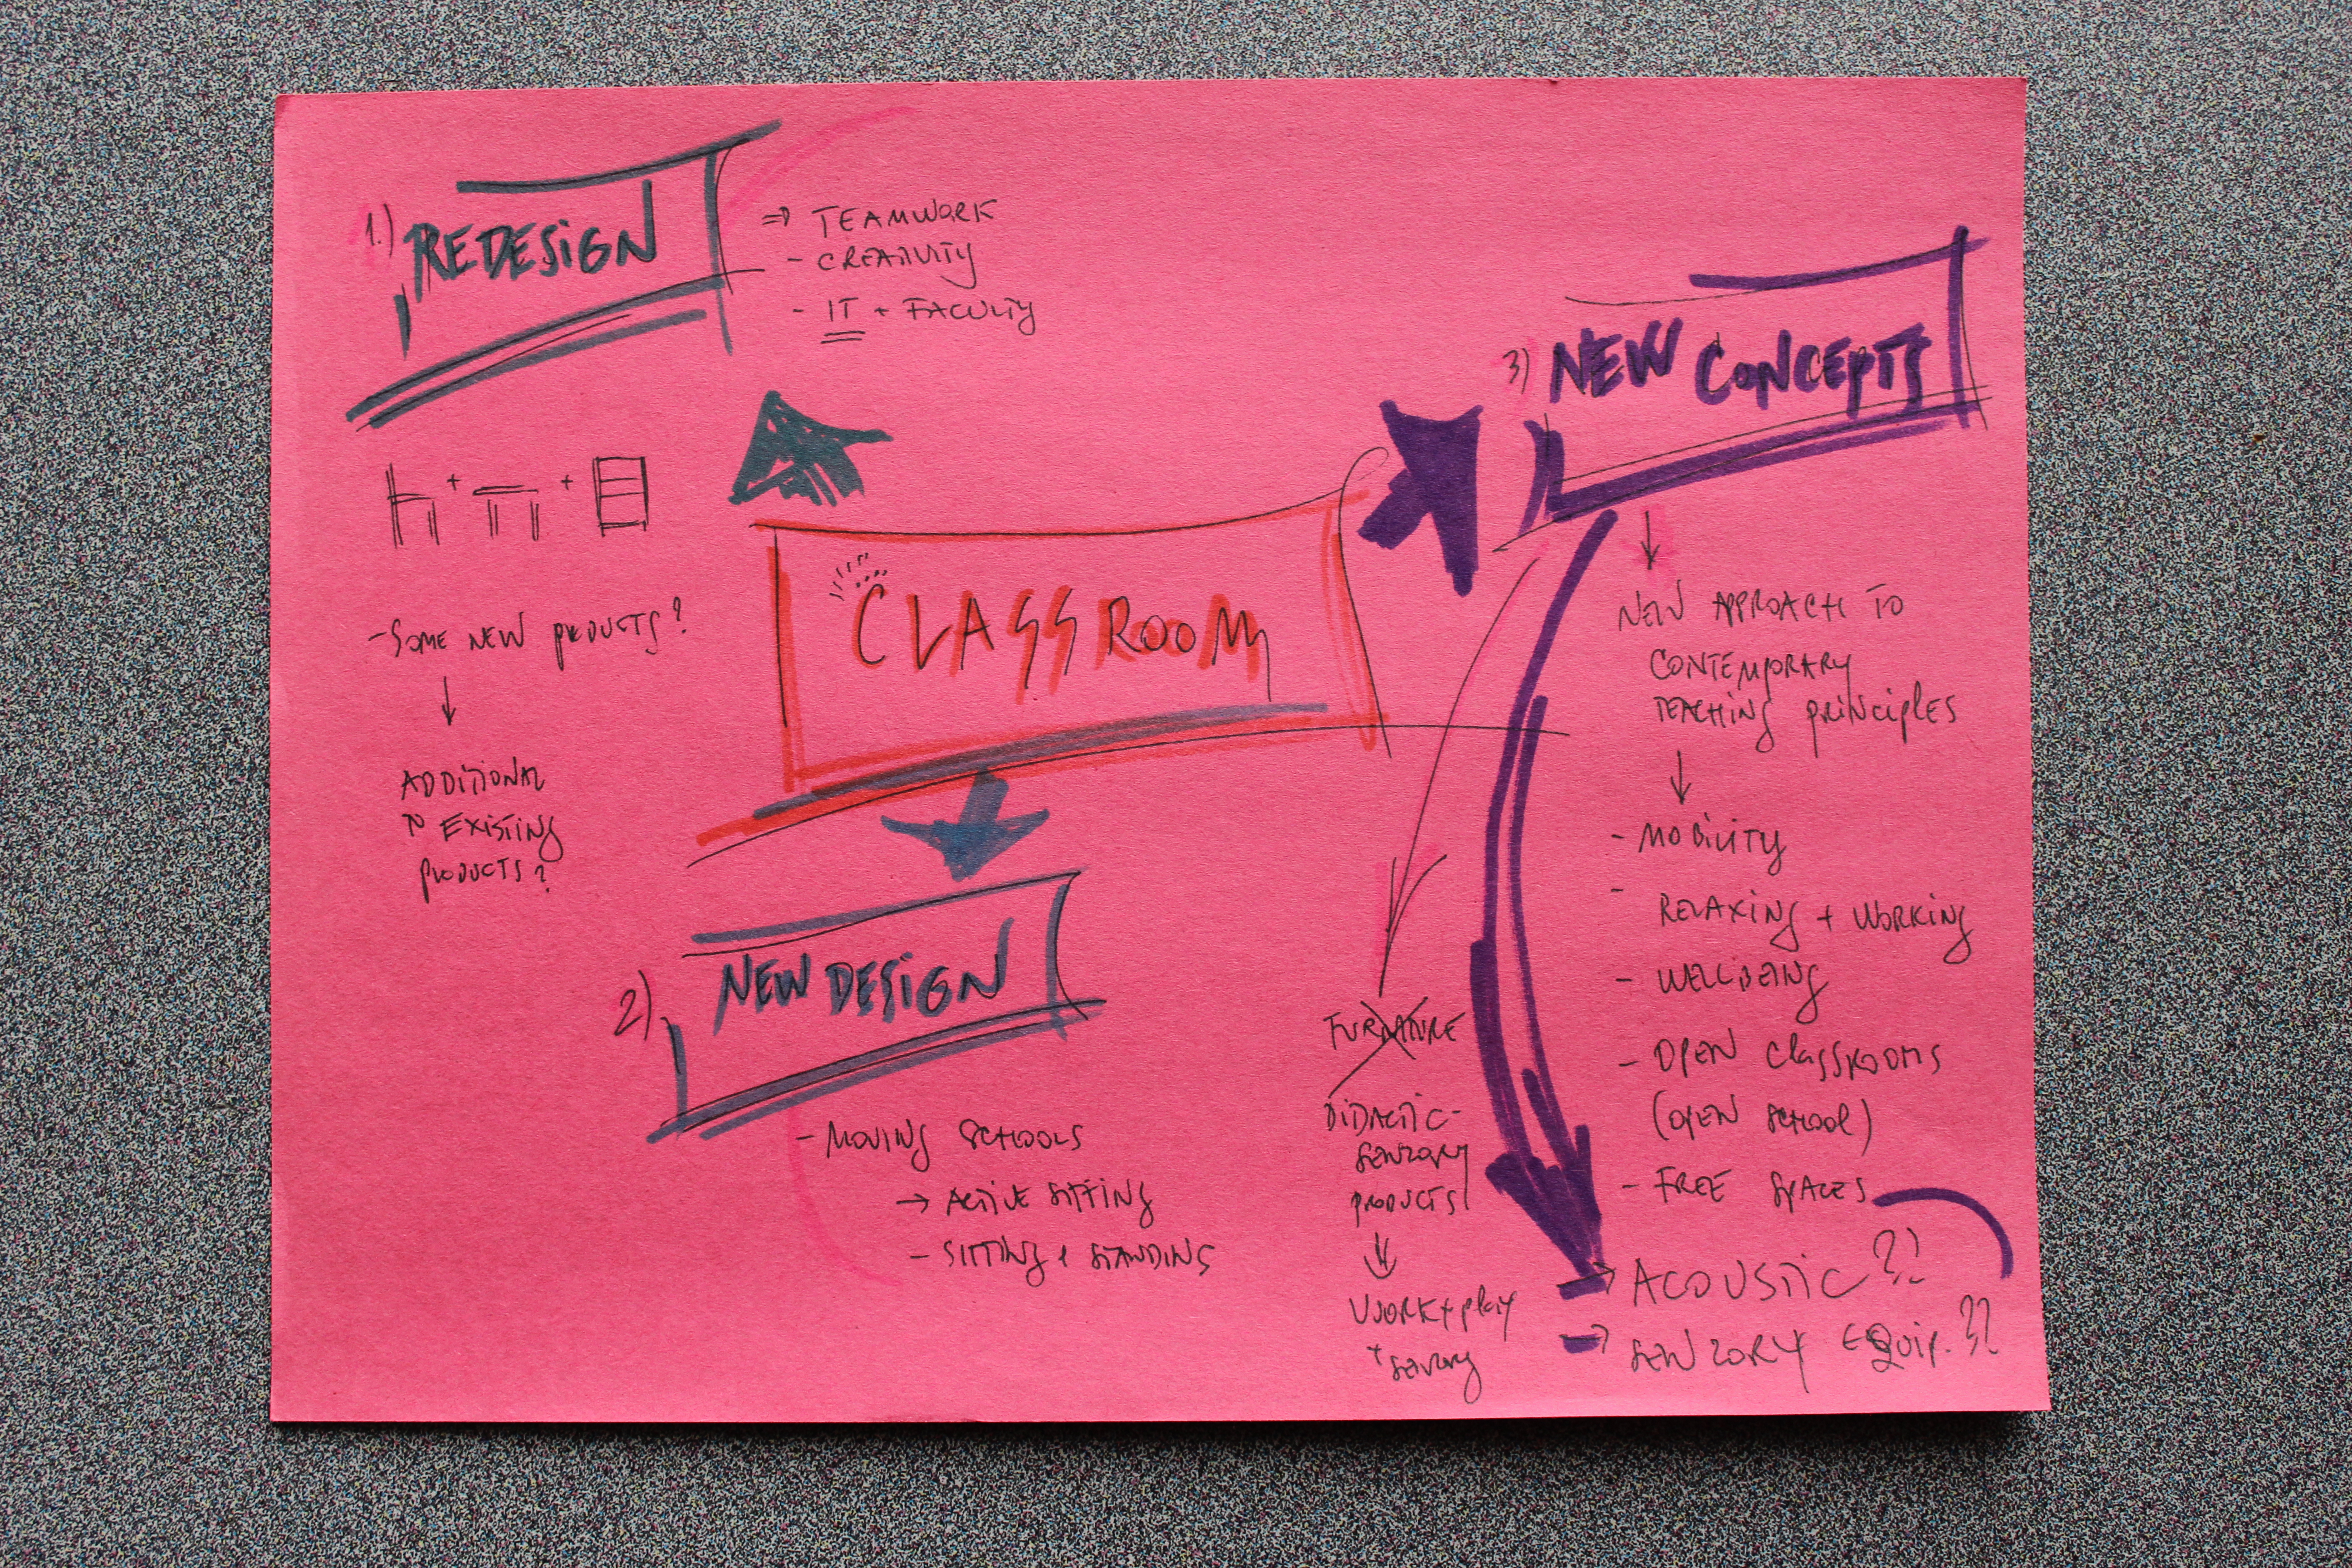 1.) REDESIGN
⇒ TEAMWORK
- CREATIVITY
- IT + FACULTY
+ +
- SOME NEW PRODUCTS?
↓
ADDITIONAL
TO EXISTING
PRODUCTS?
CLASSROOM
2) NEW DESIGN
- MOVING SCHOOLS
→ ACTIVE SITTING
- SITTING + STANDING
3) NEW CONCEPTS
↓
NEW APPROACH TO
CONTEMPORARY
TEACHING PRINCIPLES
↓
- MOBILITY
- RELAXING + WORKING
- WELLBEING
- OPEN CLASSROOMS
(OPEN SCHOOL)
- FREE SPACES
→ ACOUSTIC ??
→ SENZORY EQUIP. ??
FURNITURE
DIDACTIC-
SENZORY
PRODUCTS
↓
WORK + PLAY
+ SENZORY